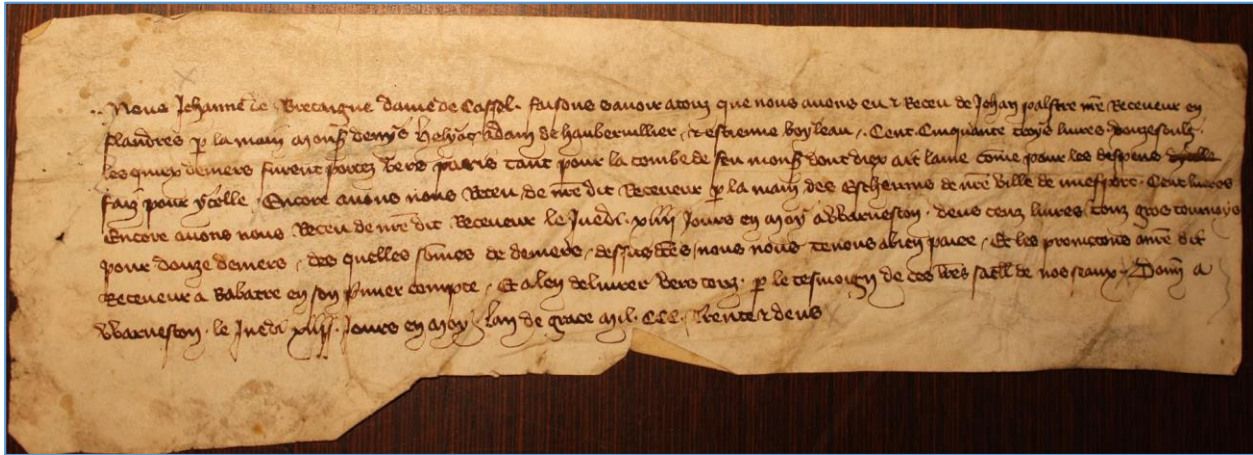 .. Nous Jehanne de Bretaigne dame de Cassel . faisons savoir a touz que nous avons eu & Receu de Jehan palstre nre Receveur en
flandres p la main monss denys helyas Adam de haubervillier , & estienne boyleau , . Cent . Cinquante troys livres . douze soulz .
les quiex deniers furent portez vers paris tant pour la tombe de feu monss dont diex ait lame come pour les despens dycelle
faiz pour ycelle . Encore avons nous Receu de nre dit Receveur p la main des Eschevins de nre ville de nuefport . Cent livres
Encore avons nous Receu de nre dit Receveur le Juedi . xiiii Jours en may a Warneston . deus cenz livres touz gros tournoys
pour douze deniers , des quelles somes de deniers , dessus nous nous tenons a bien paiee , Et les prometons a nre dit
Receveur a Rabatre en son pmier compte , Et a len delivrer vers touz . p le tesmoign de ces lres saell de nos seaux . Donn a
Warneston . le Juedi xiiii . Jours en may . lan de grace mil . CCC . trente & deus